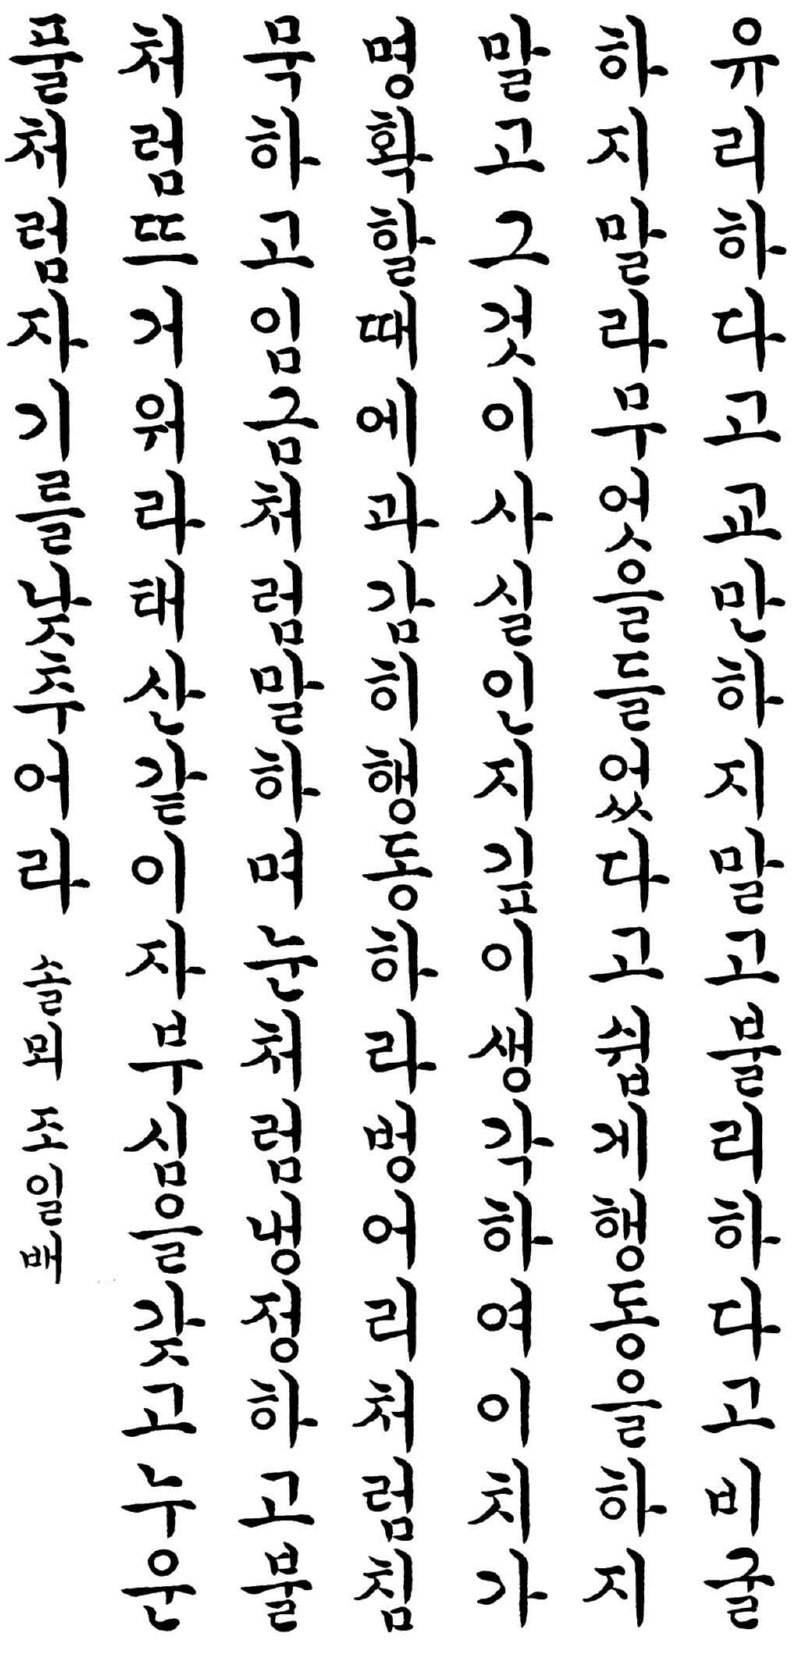 유리하다고교만하지말고불리하다고비굴
하지말라무엇을들었다고쉽게행동을하지
말고그것이사실인지깊이생각하여이치가
명확할때에과감히행동하라벙어리처럼침
묵하고임금처럼말하며눈처럼냉정하고불
처럼뜨거워라태산같이자부심을갖고누운
풀처럼자기를낮추어라 솔뫼 조일배